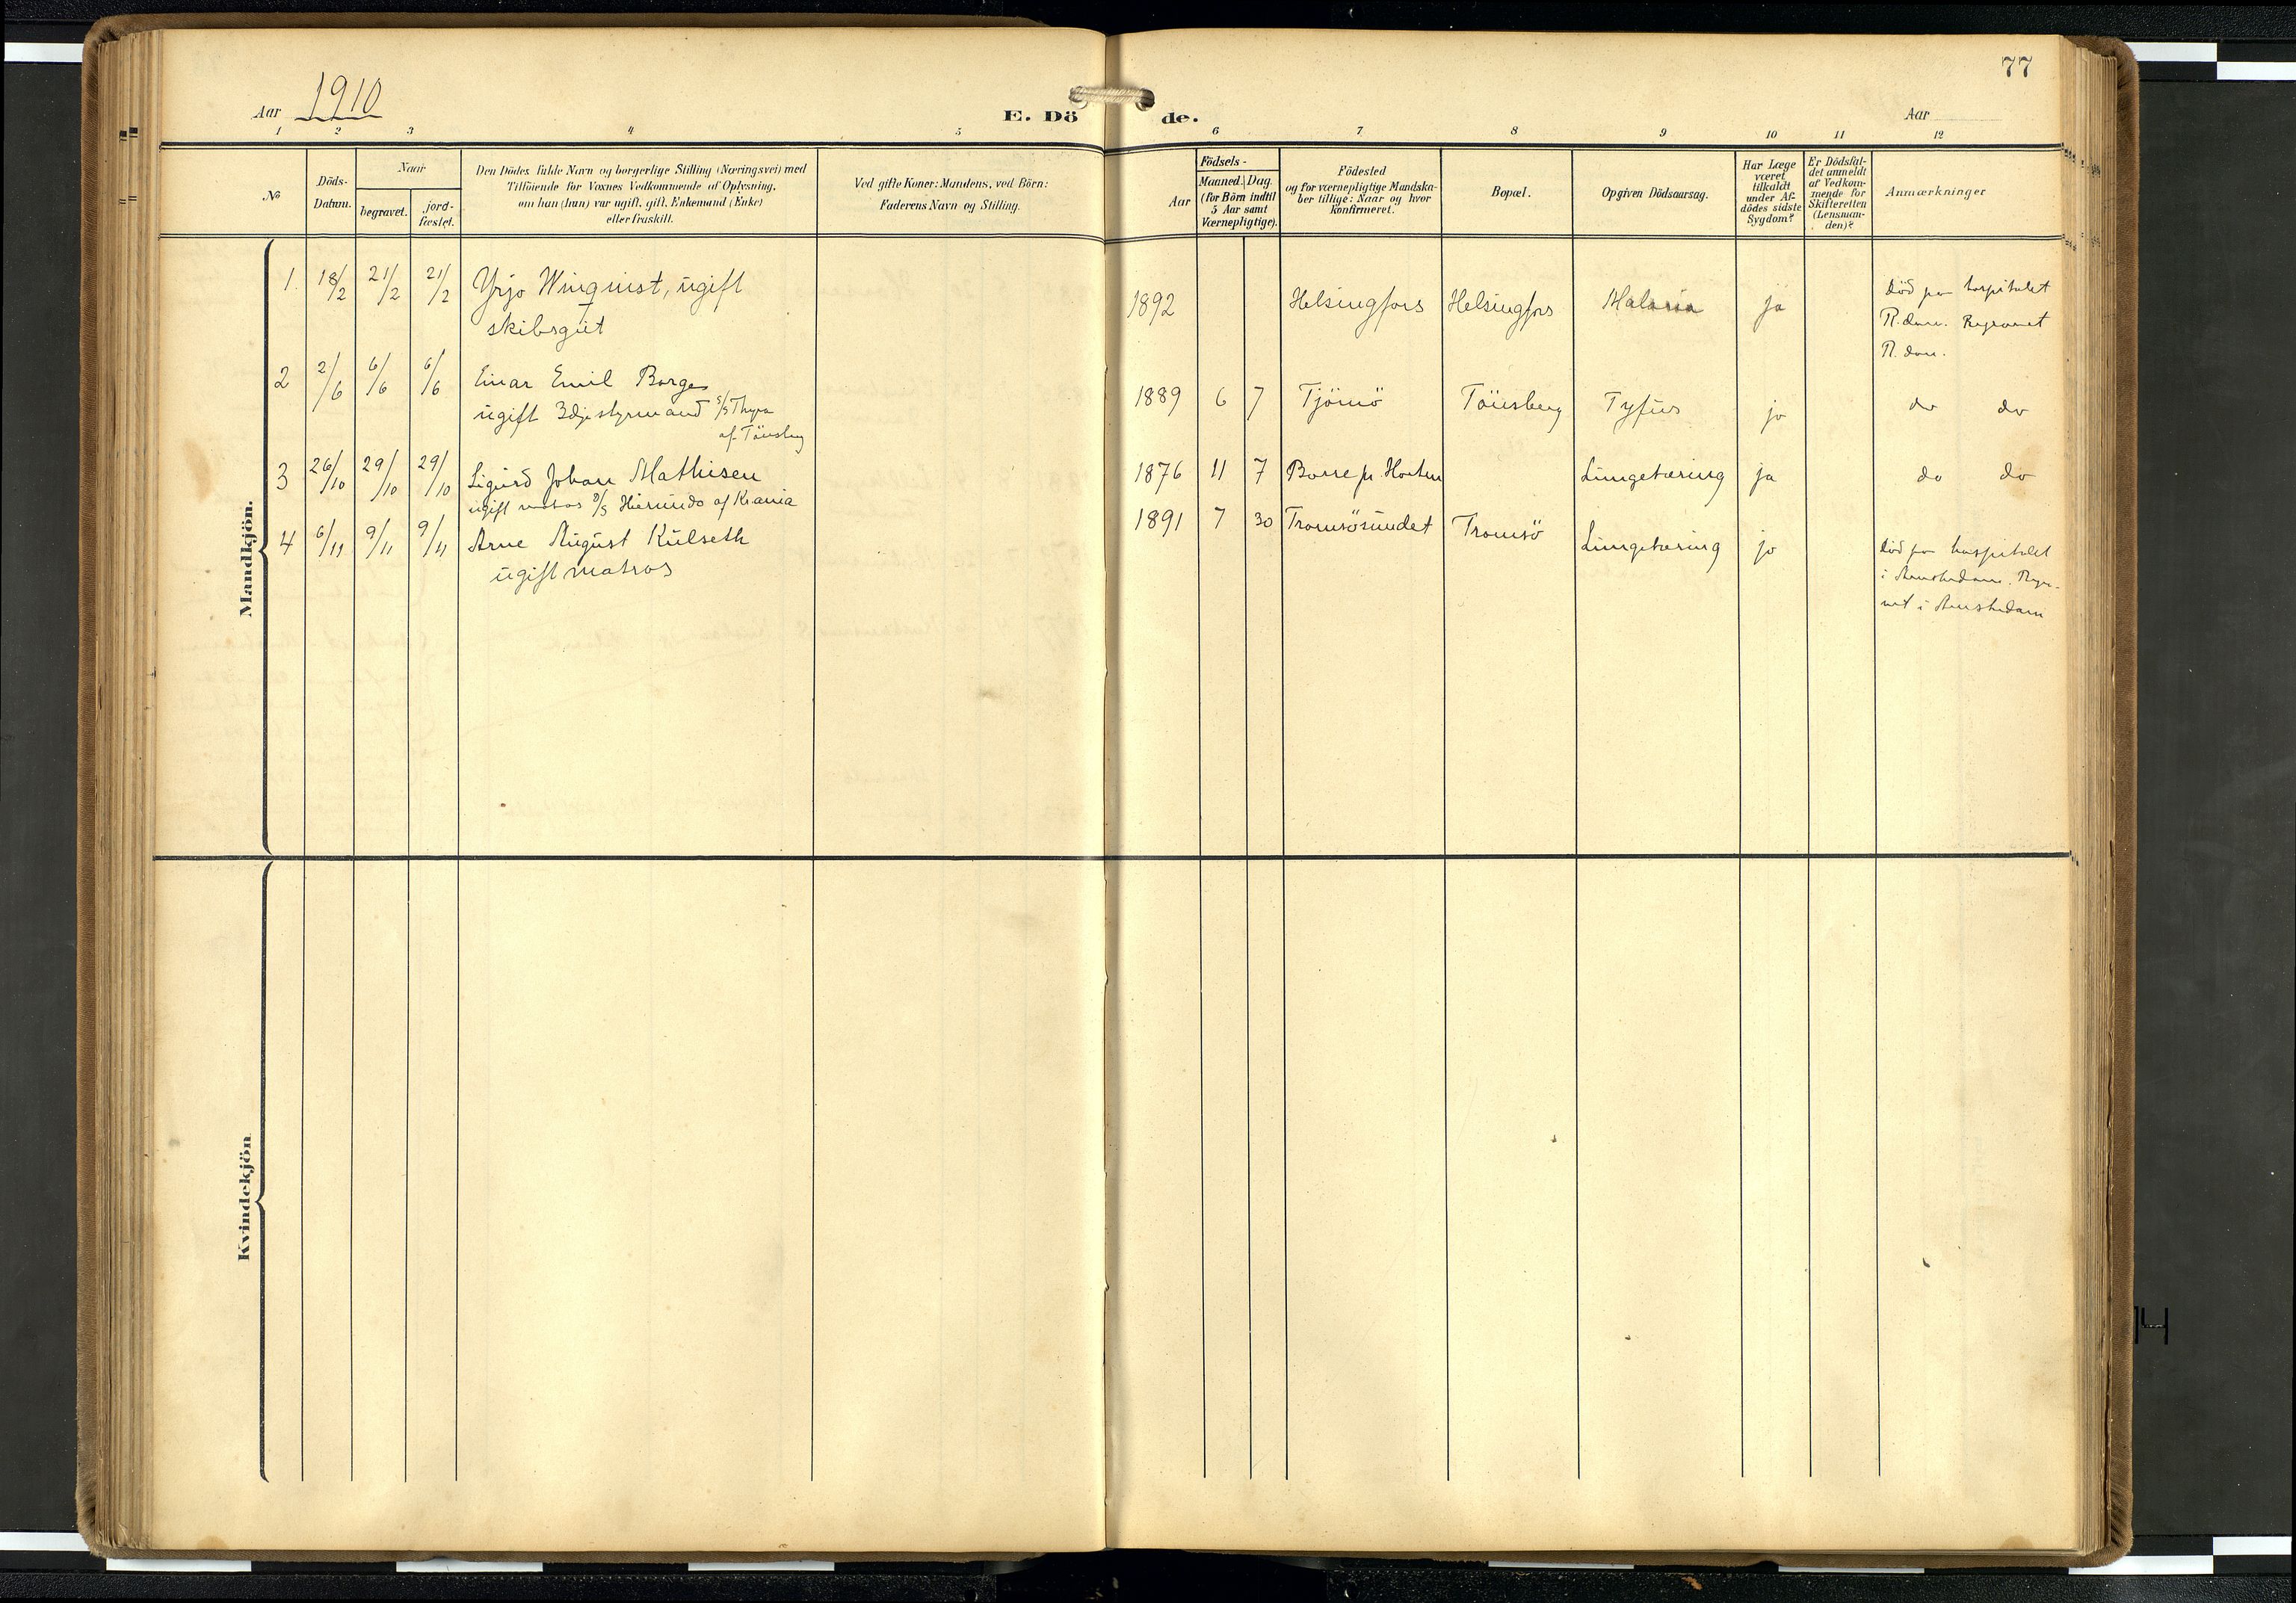 77
Aar 1910
E. Dö de.
Aar
1 2 3 4 5 6 7 8 9 10 11 12
No
Döds-
Datum.
Naar
begravet.
jord-
fæstet.
Den Dödes fulde Navn og borgerlige Stilling (Næringsvei) med
Tilföiende for Voxnes Vedkommende af Oplysning,
om han (hun) var ugift, gift, Enkemand (Enke)
eller fraskilt.
Ved gifte Koner: Mandens, ved Börn:
Faderens Navn og Stilling.
Födsels-
Aar
Maaned. Dag.
(for Börn indtil
5 Aar samt
Værnepligtige).
Födested
og for værnepligtige Mandska-
ber tillige: Naar og hvor
konfirmeret.
Bopæl.
Opgiven Dödsaarsag.
Har Læge
været
tilkaldt
under Af-
dödes sidste
Sygdom?
Er Dödsfal-
det anmeldt
af Vedkom-
mende for
Skifteretten
(Lensman-
den)?
Anmærkninger
Mandkjön.
1. 18/2 21/2 21/2 Yrjo Winquist, ugift
skibsgut
1892 Helsingfors Helsingfors Malaria ja
Död paa hospitalet
R.dam. Begravet
R.dam.
2 2/6 6/6 6/6 Einar Emil Borge
ugift 3dje styrmand s/s Thyra
af Tönsberg
1889 6 7 Tjömö Tönsberg Tyfus ja do do
3 26/10 29/10 29/10 Sigurd Johan Mathisen
ugift matros s/s Hirundo af Krania
1876 11 7 Borre pr. Horten Lungetæring ja do do
4 6/11 9/11 9/11 Arne August Kulseth
ugift matros
1891 7 30 Tromsösundet Tromsö Lungetæring ja
Död paa hospitalet
i Amsterdam. Begra-
vet i Amsterdam
Kvindekjön